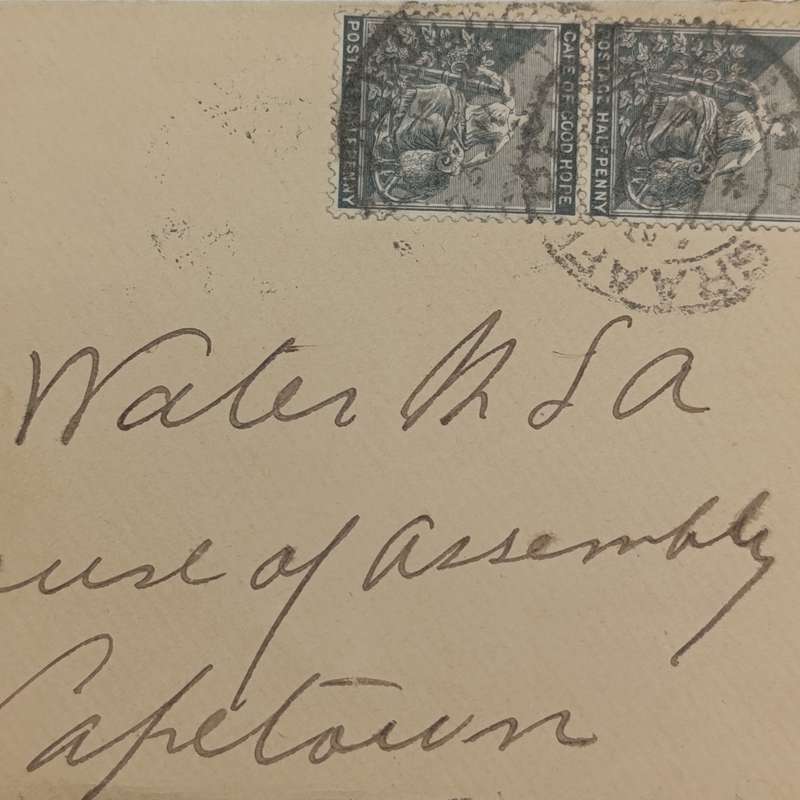 POSTAGE HALF-PENNY
CAPE OF GOOD HOPE
POSTAGE HALF-PENNY
GRAAFF
Water M L A
House of Assembly
Capetown